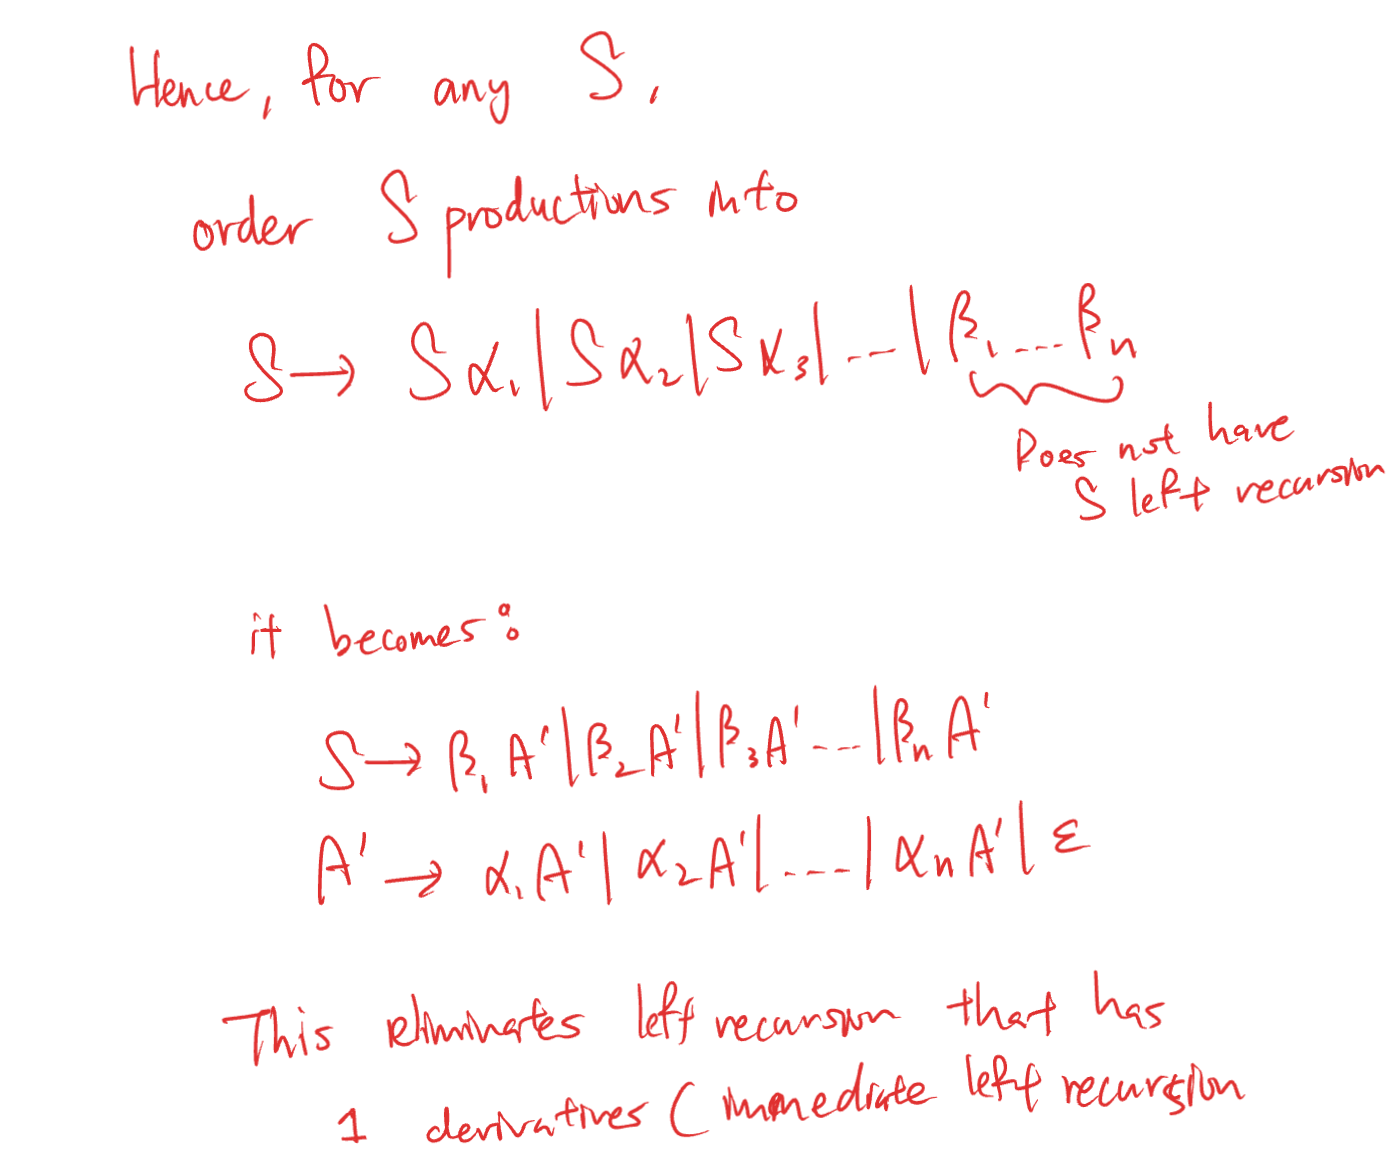 Hence, for any S,
order S productions into
S → Sα₁ | Sα₂ | Sα₃ | --- | β₁ ... βₙ
Does not have
S left recursion
it becomes:
S → β₁ A' | β₂ A' | β₃ A' --- | βₙ A'
A' → α₁ A' | α₂ A' | ---- | αₙ A' | ε
This eliminates left recursion that has
1 derivatives ( immediate left recursion